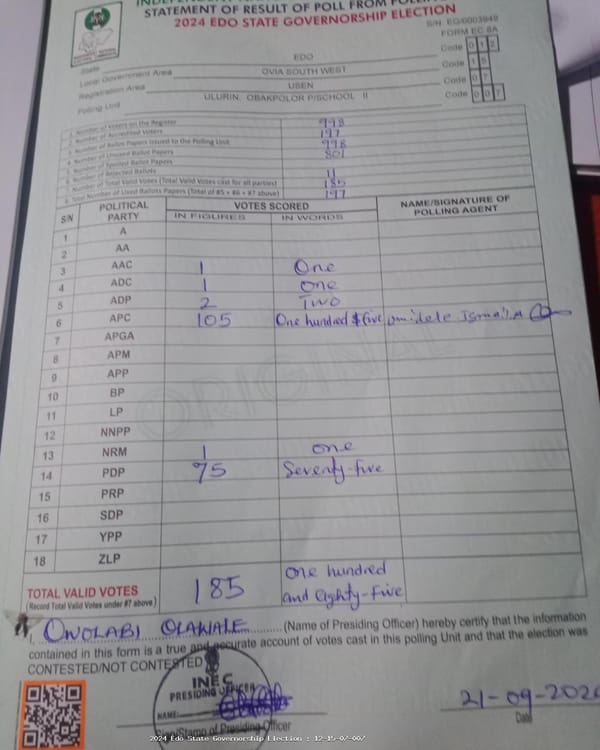 STATEMENT OF RESULT OF POLL FROM POLLING
2024 EDO STATE GOVERNORSHIP ELECTION
S/N: EG/0003949
FORM EC 8A
State EDO Code 0 1 2
Local Government Area OVIA SOUTH WEST Code 1 5
Registration Area USEN Code 0 7
Polling Unit ULURIN, OBAKPOLOR P/SCHOOL II Code 0 0 7
1. Number of Voters on the Register 998
2. Number of Accredited Voters 197
3. Number of Ballot Papers Issued to the Polling Unit 998
4. Number of Unused Ballot Papers 801
5. Number of Spoiled Ballot Papers
6. Number of Rejected Ballots 11
7. Number of Total Valid Votes (Total Valid Votes cast for all parties) 185
8. Total Number of Used Ballots Papers (Total of #5 + #6 + #7 above) 197
S/N POLITICAL PARTY VOTES SCORED NAME/SIGNATURE OF POLLING AGENT
IN FIGURES IN WORDS
1 A
2 AA
3 AAC 1 One
4 ADC 1 One
5 ADP 2 Two
6 APC 105 One hundred & five
7 APGA
8 APM
9 APP
10 BP
11 LP
12 NNPP
13 NRM 1 one
14 PDP 75 Seventy-five
15 PRP
16 SDP
17 YPP
18 ZLP
ORIGINAL
TOTAL VALID VOTES 185 one hundred
(Record Total Valid Votes under #7 above) and eighty-Five
I, OWOLABI OLAWALE (Name of Presiding Officer) hereby certify that the information
contained in this form is a true and accurate account of votes cast in this polling Unit and that the election was
CONTESTED/NOT CONTESTED
INEC
PRESIDING OFFICER
NAME:
Sign/Stamp of Presiding Officer
21-09-202
Date
2024 Edo State Governorship Election : 12-15-07-007